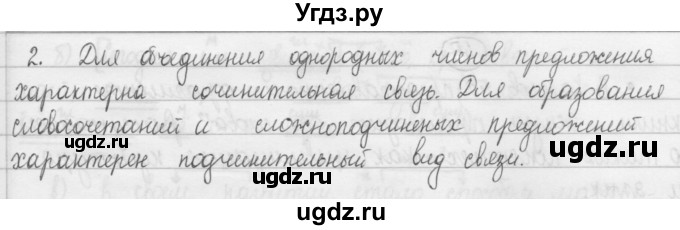 Угдз.ру
2. Для объединения однородных членов предложения
характерна сочинительная связь. Для образования
словосочетаний и сложноподчиненых предложений
характерен подчинительный вид связи.
ugdz.ru
ugdz.ru
ugdz.ru
ugdz.ru
ugdz.ru
ugdz.ru